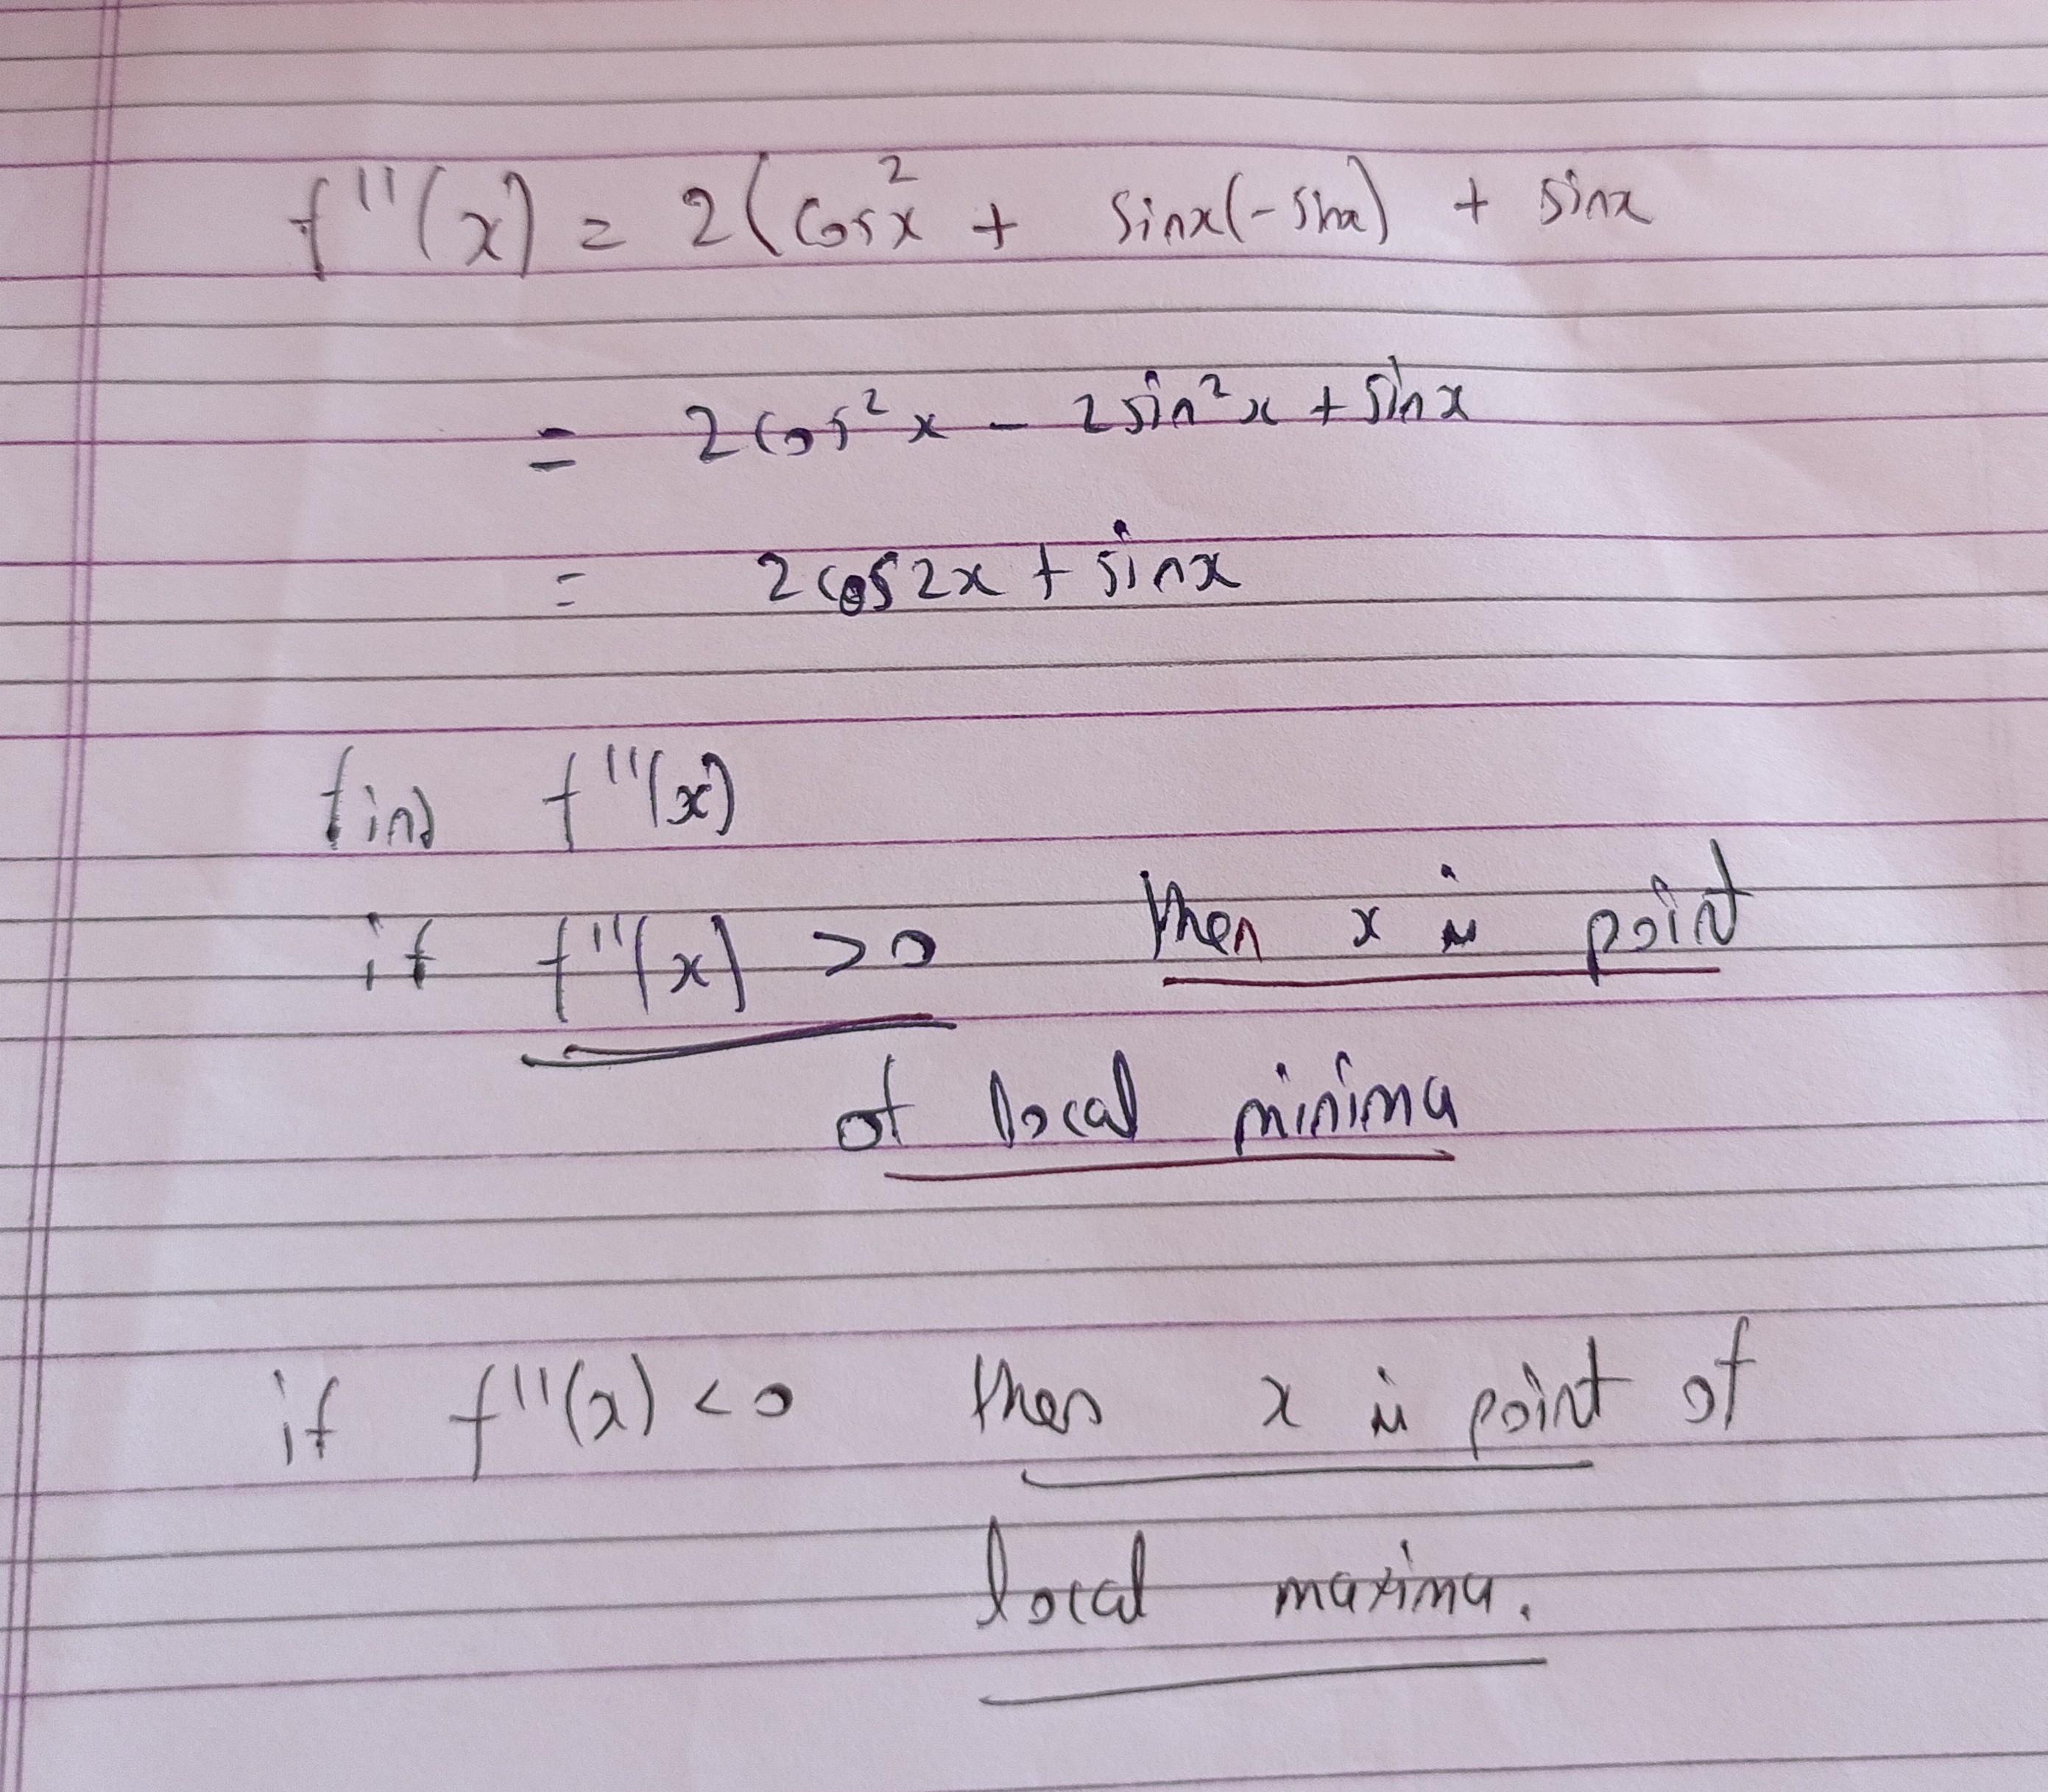 f''(x) = 2(cos²x + sinx(-sinx) + sinx
= 2cos²x - 2sin²x + sinx
= 2cos2x + sinx
find f''(x)
if f''(x) >0 then x is point
of local minima
if f''(x) <0 then x is point of
local maxima.